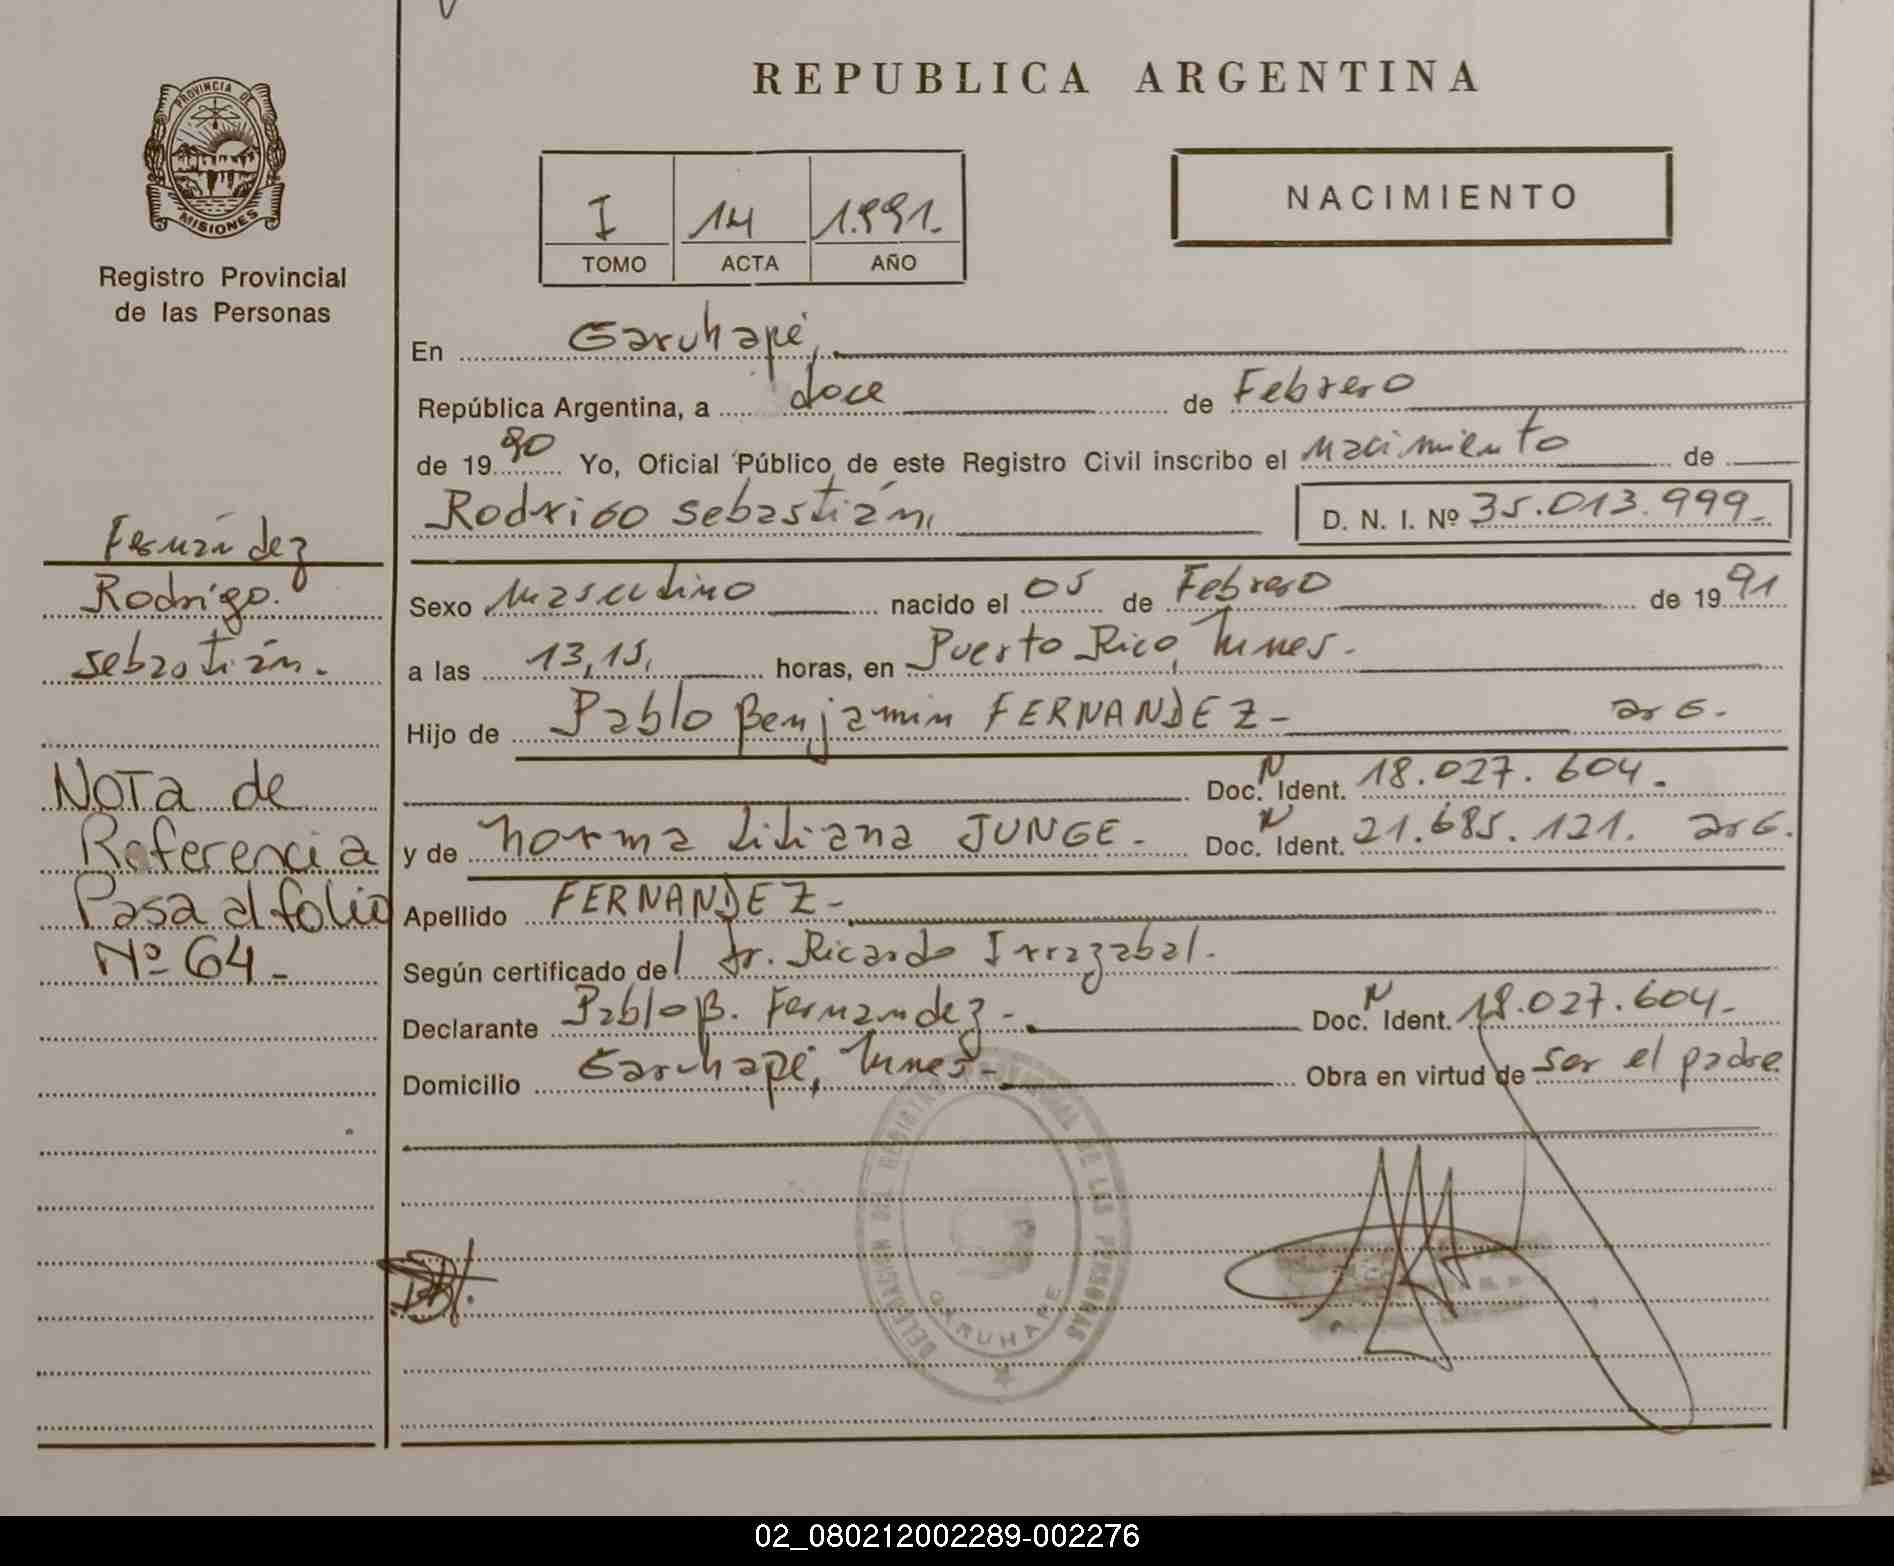 REPUBLICA ARGENTINA
PROVINCIA DE
MISIONES
Registro Provincial
de las Personas
I 14 1.991.
TOMO ACTA AÑO
NACIMIENTO
En Garuhapé,
República Argentina, a doce de Febrero
de 1990 Yo, Oficial Público de este Registro Civil inscribo el nacimiento de
Rodrigo Sebastián, D. N. I. Nº 35.013.999-
Sexo Masculino nacido el 05 de Febrero de 1991
a las 13,15, horas, en Puerto Rico, Mnes.
Hijo de Pablo Benjamin FERNANDEZ- arg.
Doc. N Ident. 18.027.604.
y de Norma Liliana JUNGE- Doc. N Ident. 21.685.121. arg.
Apellido FERNANDEZ-
Según certificado del Dr. Ricardo Irrazabal.
Declarante Pablo B. Fernandez- Doc. N Ident. 18.027.604-
Domicilio Garuhapé, Mnes- Obra en virtud de ser el padre
Fernández
Rodrigo.
Sebastián.
NOTA de
Referencia
Pasa al folio
Nº 64-
DELEGACION DEL REGISTRO PROVINCIAL DE LAS PERSONAS
GARUHAPE
02_080212002289-002276